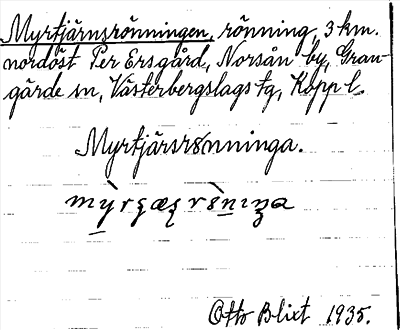 Myrtjärnsrönningen, rönning, 3 km.
nordöst Per Ersgård, Norsån by, Gran-
gärde sn, Västerbergslags fg, Kopp l.
Myrtjärsrönninga.
Otto Blixt 1935.